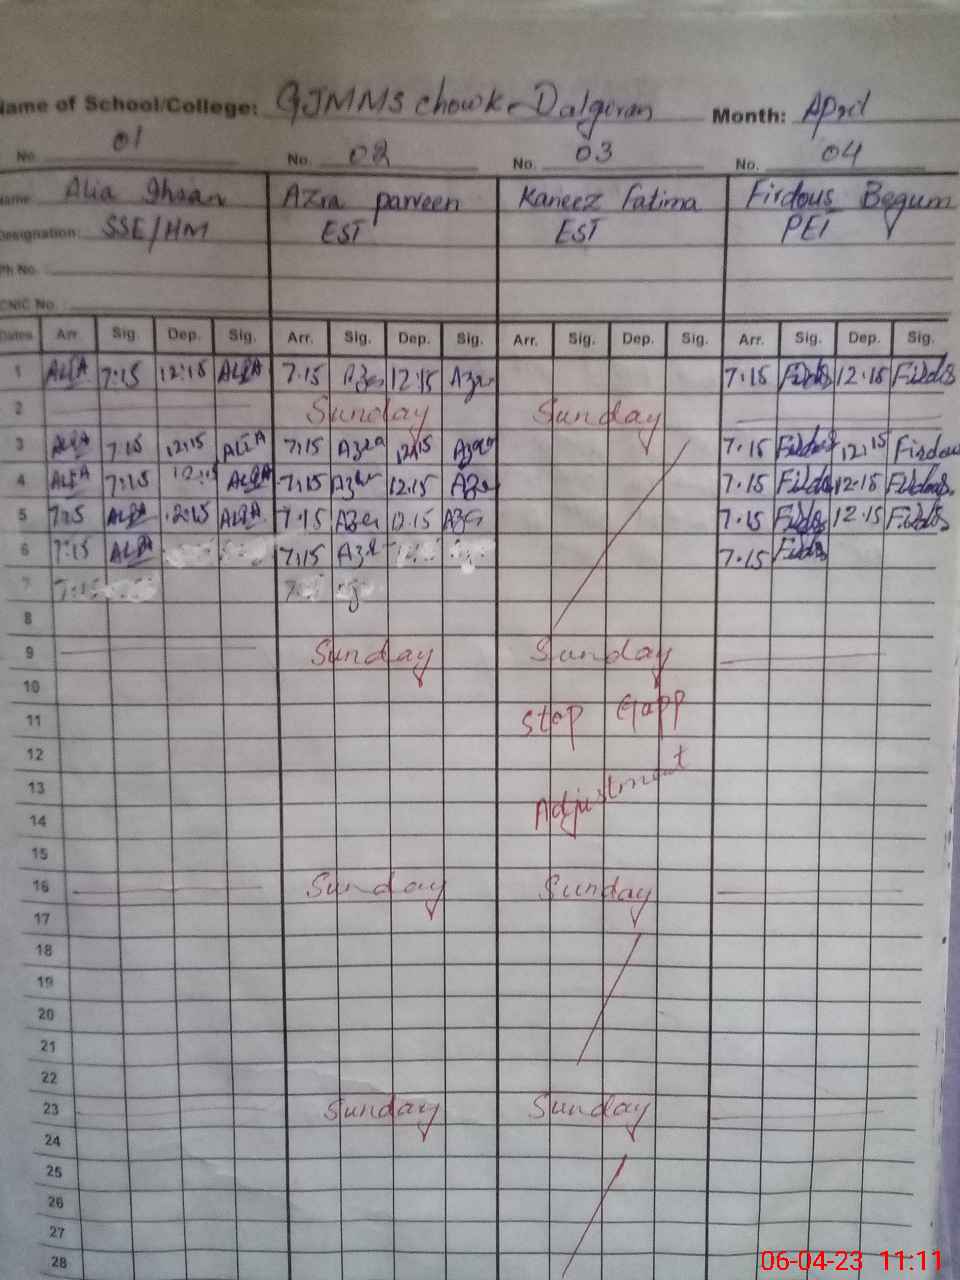 Name of School/College: GJMMS chowk-Dalgiran Month: April
No. 01 No. 02 No. 03 No. 04
Name Alia Ihsan Azra parveen Kaneez Fatima Firdous Begum
Designation: SSE/HM EST EST PET
Ph No.
CNIC No.
Dates Arr. Sig. Dep. Sig. Arr. Sig. Dep. Sig. Arr. Sig. Dep. Sig. Arr. Sig. Dep. Sig.
1 ALIA 7:15 12:15 ALIA 7.15 Azra 12:15 Azra 7.15 Firdos 12.15 Firdos
2 Sunday Sunday
3 ALIA 7:15 12:15 ALIA 7:15 Azra 12:15 Azra 7.15 Firdous 12:15 Firdous
4 ALIA 7:15 12:15 ALIA 7:15 Azra 12.15 Azra 7.15 Firdos 12.15 Firdous
5 7:15 ALIA 12:15 ALIA 7:15 Azra 12.15 Azra 7.15 Firdos 12.15 Firdos
6 7:15 ALIA 7:15 Azra 7.15 Firdos
7 7:15
8
9 Sunday Sunday
10
11 Stop Gapp
12
13 Adjustment
14
15
16 Sunday Sunday
17
18
19
20
21
22
23 Sunday Sunday
24
25
26
27
28
06-04-23 11:11